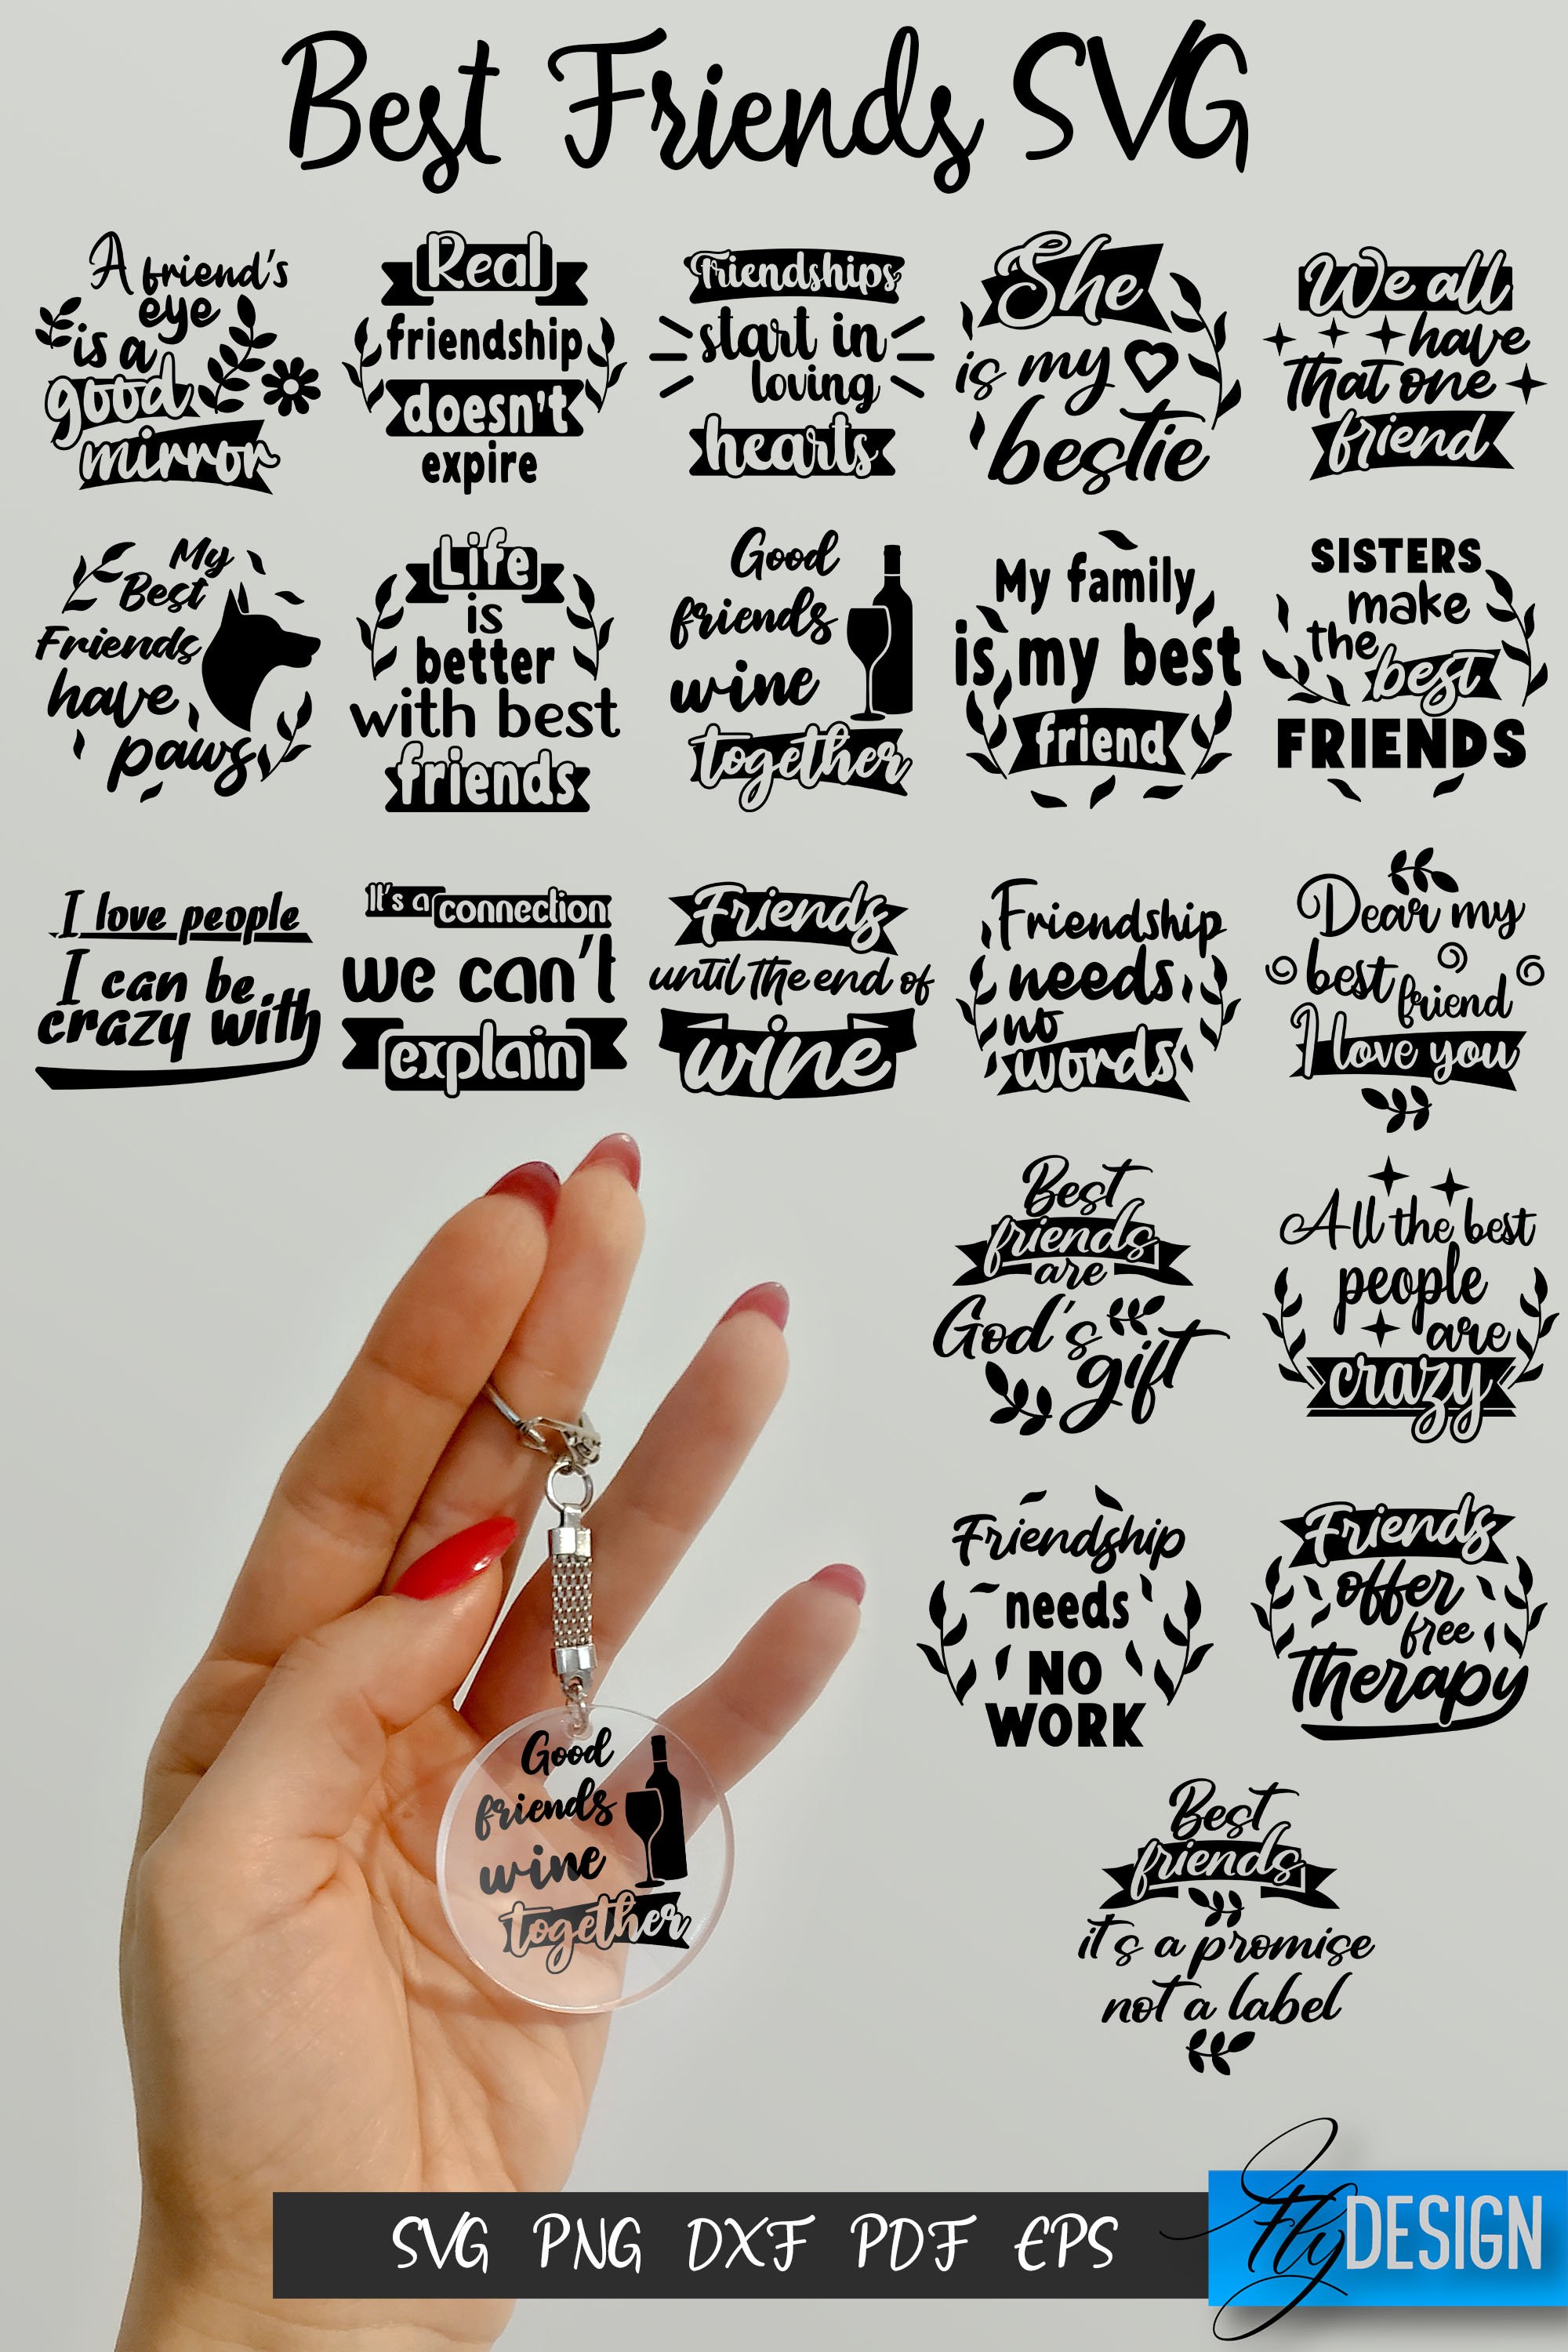 Best Friends SVG
A friend's
eye
is a
good
mirror
Real
friendship
doesn't
expire
Friendships
start in
loving
hearts
She
is my
bestie
We all
have
that one
friend
My
Best
Friends
have
paws
Life
is
better
with best
friends
Good
friends
wine
together
My family
is my best
friend
SISTERS
make
the
best
FRIENDS
I love people
I can be
crazy with
It's a connection
we can't
explain
Friends
until the end of
wine
Friendship
needs
no
words
Dear my
best friend
I love you
Best
friends
are
God's
gift
All the best
people
are
crazy
Friendship
needs
NO
WORK
Friends
offer
free
therapy
Good
friends
wine
together
Best
friends
it's a promise
not a label
SVG PNG DXF PDF EPS
Fly DESIGN